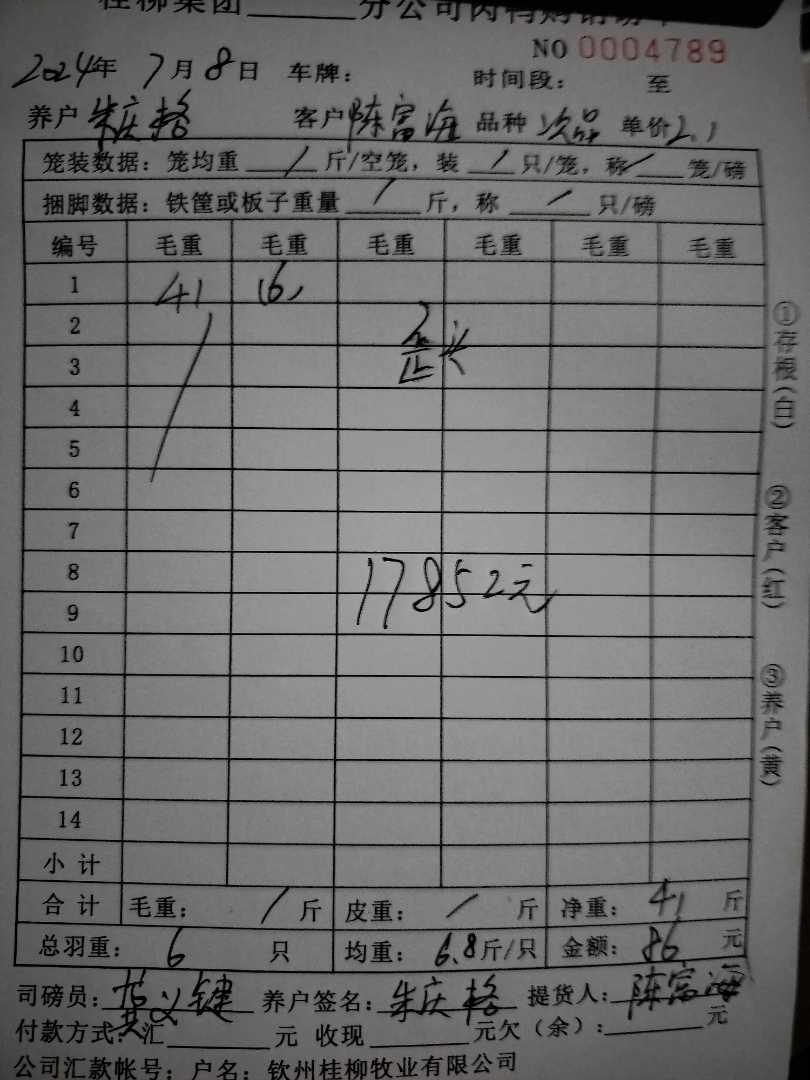 桂柳集团______分公司肉鸭购销磅单
NO 0004789
2024年 7月8日 车牌： 时间段： 至
养户 朱庆格 客户 陈富海 品种 次品 单价 2.1
笼装数据：笼均重 / 斤/空笼，装 / 只/笼，称 / 笼/磅
捆脚数据：铁筐或板子重量 / 斤，称 / 只/磅
编号 毛重 毛重 毛重 毛重 毛重 毛重
1 41 (6)
2
3
4
5
6
7
8 17852元
9
10
11
12
13
14
小计
合计 毛重： / 斤 皮重： / 斤 净重： 41 斤
总羽重： 6 只 均重： 6.8斤/只 金额： 86 元
司磅员： 义键 养户签名： 朱庆格 提货人： 陈富海
付款方式：汇______元 收现______元欠（余）：______元
公司汇款帐号：户名：钦州桂柳牧业有限公司
①存根（白）
②客户（红）
③养户（黄）